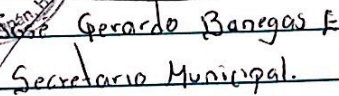 José Gerardo Banegas E
Secretario Municipal.